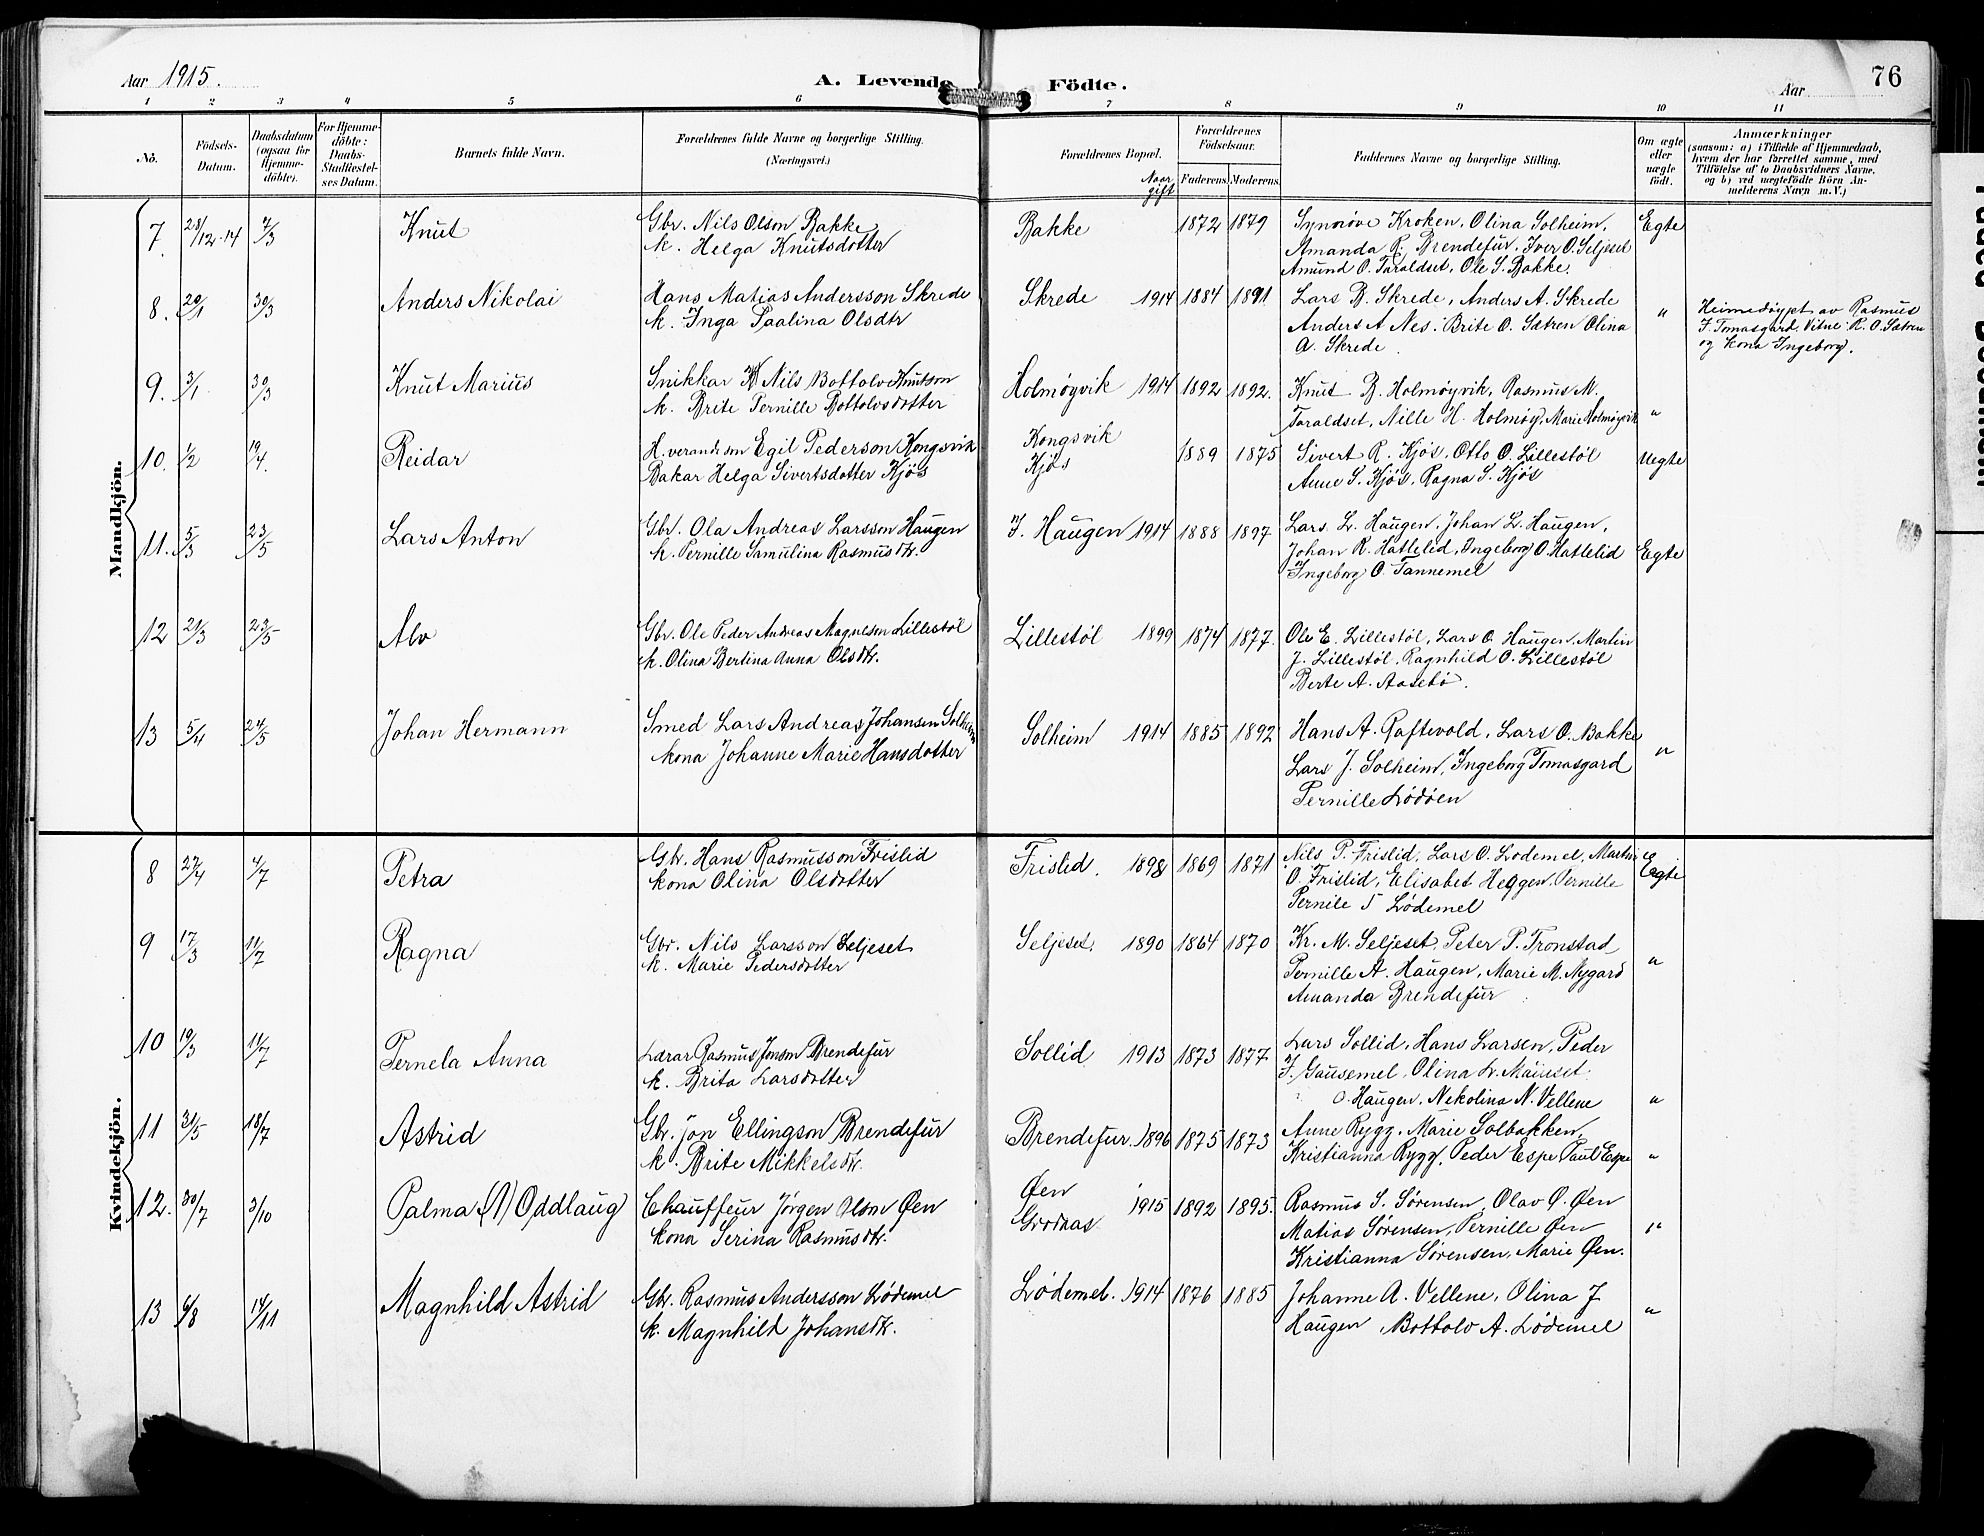 Aar 1915.
A. Levende Födte.
Aar
76
1 2 3 4 5 6 7 8 9 10 11
No.
Födsels-Datum.
Daabsdatum (ogsaa for Hjemme-döbte).
For Hjemme-döbte: Daabs-Stadfæstel-ses Datum.
Barnets fulde Navn.
Forældrenes fulde Navne og borgerlige Stilling. (Næringsvei.)
Forældrenes Bopæl.
Naar gift
Forældrenes Födselsaar.
Faderens Moderens
Faddernes Navne og borgerlige Stilling.
Om ægte eller uægte födt.
Anmærkninger
(saasom: a) i Tilfælde af Hjemmedaab,
hvem der har forrettet samme, med
Tilföielse af to Daabsvidners Navne,
og b) ved uægtefödte Börn An-
melderens Navn m. V.)
Mandkjön.
7. 28/12-14 7/3 Knut
Gbr. Nils Olson Bakke
k. Helga Knutsdotter
Bakke 1872 1879
Synnøve Kroken, Olina Solheim,
Amanda R. Brendefur, Iver O. Seljeset
Amund O. Taraldset, Ole S. Bakke.
Egte
8. 20/1 30/3 Anders Nikolai
Hans Matias Andersson Skrede
k. Inga Paalina Olsdtr
Skrede 1914 1884 1891
Lars B. Skrede, Anders A. Skrede
Anders A Nes. Brite O. Sætren Olina
A. Skrede.
"
Heimedøypt av Rasmus
J. Tomasgard. Vitne: R. O. Sætren
og kona Ingeborg.
9. 3/1 30/3 Knut Marius
Snikkar Nils Bottolv Knutson
k. Brite Pernille Bottolvsdotter
Holmøyvik 1914 1892 1892.
Knut B. Holmøyvik, Rasmus M.
Taraldset, Nille H. Holmøy, Marie Holmøyvik
"
10. 1/2 19/4. Reidar
H. verandi son Egil Pederson Kongsvik
Bakar Helga Sivertsdotter Kjøs
Kongsvik
Kjøs
1889 1875
Sivert R. Kjøs, Otto O. Lillestøl
Anne S. Kjøs, Ragna S. Kjøs
Uegte
11. 5/3 23/5 Lars Anton
Gbr. Ola Andreas Larsson Haugen
k. Pernille Samulina Rasmusdtr.
I. Haugen 1914 1888 1897
Lars L. Haugen, Johan L. Haugen,
Johan R. Hattelid, Ingeborg O. Hattelid
Ingeborg O. Tannemel
Egte
12 21/3 23/5 Alv
Gbr. Ole Peder Andreas Magneson Lillestøl
k. Olina Bertina Anna Olsdtr.
Lillestøl 1899 1874 1877.
Ole E. Lillestøl, Lars O. Haugen, Martin
J. Lillestøl, Ragnhild O. Lillestøl
Berte A. Aasebø.
13 5/4 24/5 Johan Hermann
Smed Lars Andreas Johansen Solheim
kona Johanne Marie Hansdotter
Solheim 1914 1885 1892
Hans A. Raftevold, Lars O. Bakke
Lars J. Solheim, Ingeborg Tomasgard
Pernille Lødøen
"
Kvindekjön.
8 27/4 4/7 Petra
Gbr. Hans Rasmusson Frislid
kona Olina Olsdotter
Frislid. 1898 1869 1871
Nils P. Frislid, Lars O. Lødemel, Martin
O. Frislid, Elisabet Heggen, Pernille
Pernile S Lødemel
Egte
9 17/3 11/7 Ragna
Gbr. Nils Larsson Seljeset
k. Marie Pedersdotter
Seljeset. 1890 1864 1870
Kr. M. Seljeset, Peter P. Tronstad
Pernille A. Haugen, Marie M. Nygard
Amanda Brendefur
"
10 19/3 11/7 Pernela Anna
Lærar Rasmus Jonson Brendefur
k. Brita Larsdotter
Sollid 1913 1873 1877
Lars Sollid, Hans Larsen, Peder
J. Gausemel, Olina L. Maurset
O. Haugen, Nekolina N. Vellene
"
11 31/5 18/7 Astrid
Gbr. Jon Ellingson Brendefur
k. Brite Mikkelsdtr.
Brendefur. 1896 1875 1873
Anne Rygg. Marie Solbakken,
Kristianna Rygg, Peder Espe Paul Espe
"
12. 30/7 3/10 Palma (1) Oddlaug
Chauffeur Jørgen Olson Øen
kona Serina Rasmusdtr.
Øen
Grodaas.
1915 1892 1895.
Rasmus S. Sørensen, Olav O. Øen
Matias Sørensen, Pernille Øen
Kristianna Sørensen, Marie Øen.
"
13 6/8 14/11 Magnhild Astrid
Gbr. Rasmus Andersson Lødemel
k. Magnhild Johansdtr.
Lødemel. 1914 1876 1885
Johanne A. Vellene, Olina J
Haugen, Bottolv A. Lødemel
"